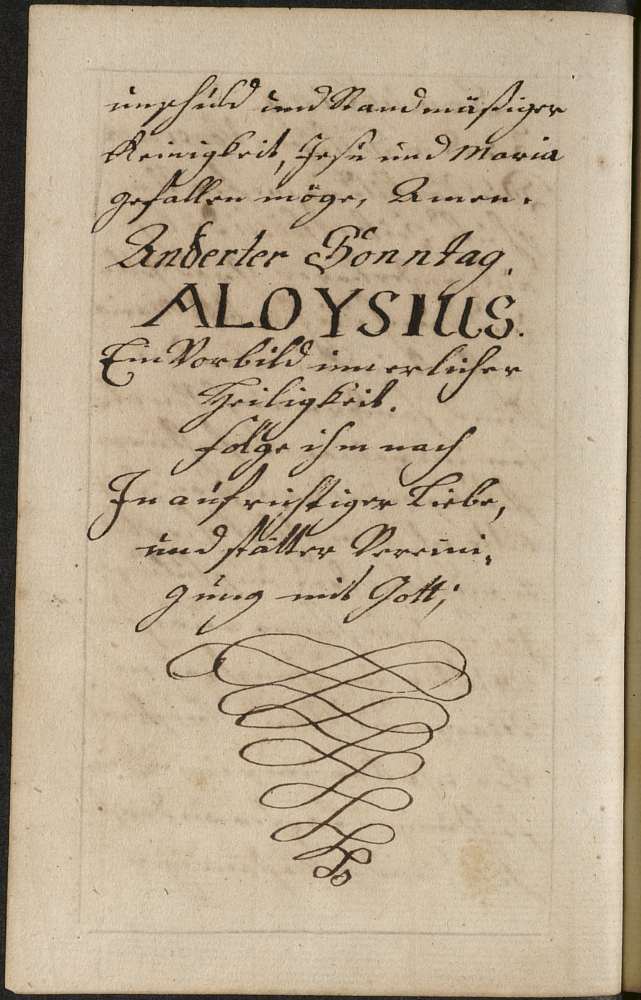 unschuld und Standmäßiger
Reinigkeit, Jesu und Maria
gefallen möge, Amen.
Anderter Sonntag.
ALOYSIUS.
Ein Vorbild innerlicher
Heiligkeit.
Folge ihm nach
In aufrichtiger Liebe,
und stätter Vereini-
gung mit Gott;